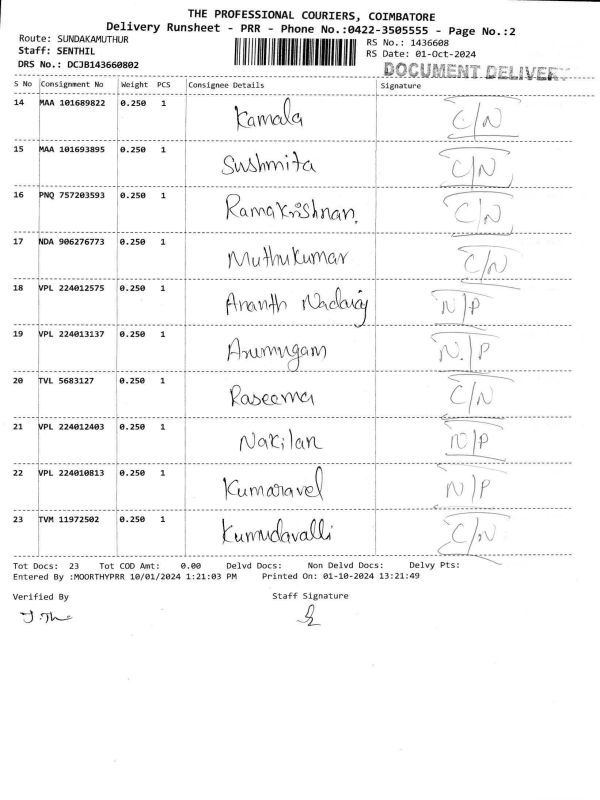 THE PROFESSIONAL COURIERS, COIMBATORE
Delivery Runsheet - PRR - Phone No.:0422-3505555 - Page No.:2
Route: SUNDAKAMUTHUR
RS No.: 1436608
Staff: SENTHIL
RS Date: 01-Oct-2024
DRS No.: DCJB143660802
DOCUMENT DELIVERY
S No Consignment No Weight PCS Consignee Details Signature
14 MAA 101689822 0.250 1 Kamala C/N
15 MAA 101693895 0.250 1 Sushmita C/N
16 PNQ 757203593 0.250 1 RamaKrishnan. C/N
17 NDA 906276773 0.250 1 Muthukumar C/N
18 VPL 224012575 0.250 1 Ananth Nadaraj N/P
19 VPL 224013137 0.250 1 Arumugam N/P
20 TVL 5683127 0.250 1 Raseema C/N
21 VPL 224012403 0.250 1 Nakilan N/P
22 VPL 224010813 0.250 1 Kumaravel N/P
23 TVM 11972502 0.250 1 Kumudavalli C/N
Tot Docs: 23 Tot COD Amt: 0.00 Delvd Docs: Non Delvd Docs: Delvy Pts:
Entered By :MOORTHYPRR 10/01/2024 1:21:03 PM Printed On: 01-10-2024 13:21:49
Verified By Staff Signature